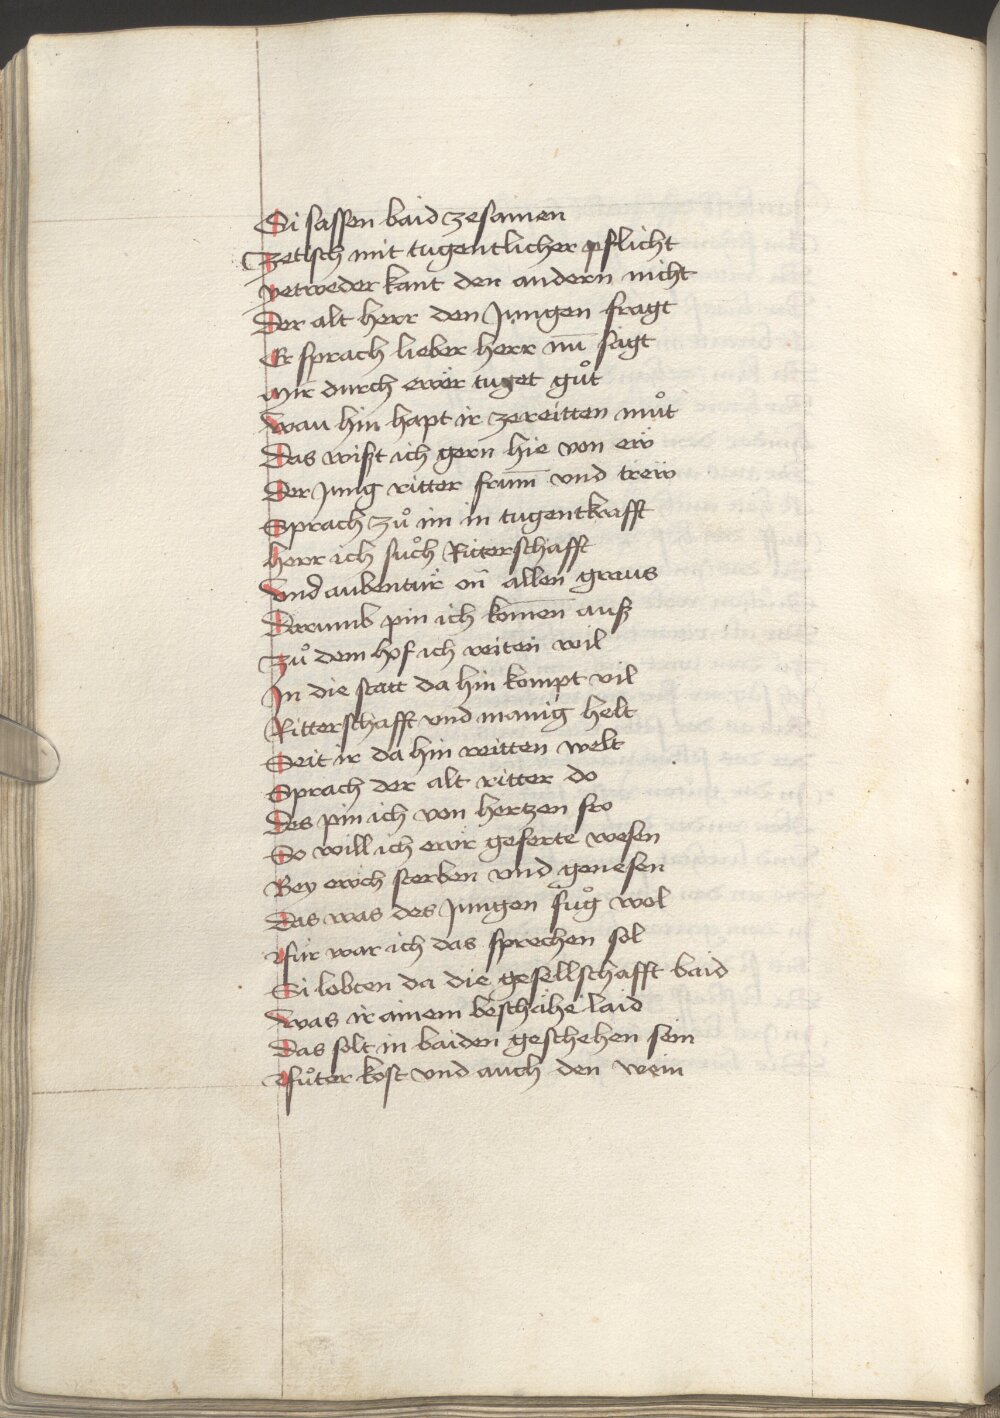 Si sassen baid zesamen
Ze tisch mit tugentlicher pflicht
yetweder kant den andern nicht
Der alt herr den Jungen fragt
Er sprach lieber herr nu̅ sagt
Mir durch ewër tuget gůt
wau hin hapt ir zereitten můt
Das wißt ich gern hie von eẅ
Der Jung ritter frum̅ vnd treẅ
Sprach zů im in tugentkrafft
herr ich sůch Ritterschafft
Vnd aubentür̈ on̅ allen graus
Darumb pin ich kom̅en auß
Zů dem hof ich reiten wil
In die statt da hin kompt vil
Ritterschafft vnd manig helt
Seit ir da hin reitten welt
Sprach der alt ritter do
Des pin ich von hertzen fro
So will ich ewr̈ geferte wesen
Bey ewch sterben vnd genesen
Das was des Jungen fůg wol
Für war ich das sprechen sol
Si lobten da die gesellschafft baid
was ir ainem beschähe laid
Das solt in baiden geschehen sein
Fůter kost vnd auch den wein